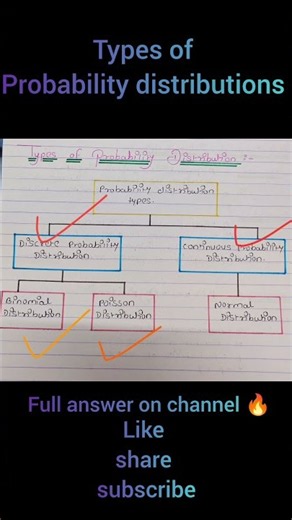 Types of
Probability distributions
Types of Probability Distribution :-
Probability distribution
types.
Discrete Probability
Distribution
Continuous Probability
Distribution
Binomial
Distribution
Poisson
Distribution
Normal
Distribution
Full answer on channel 🔥
Like
share
subscribe